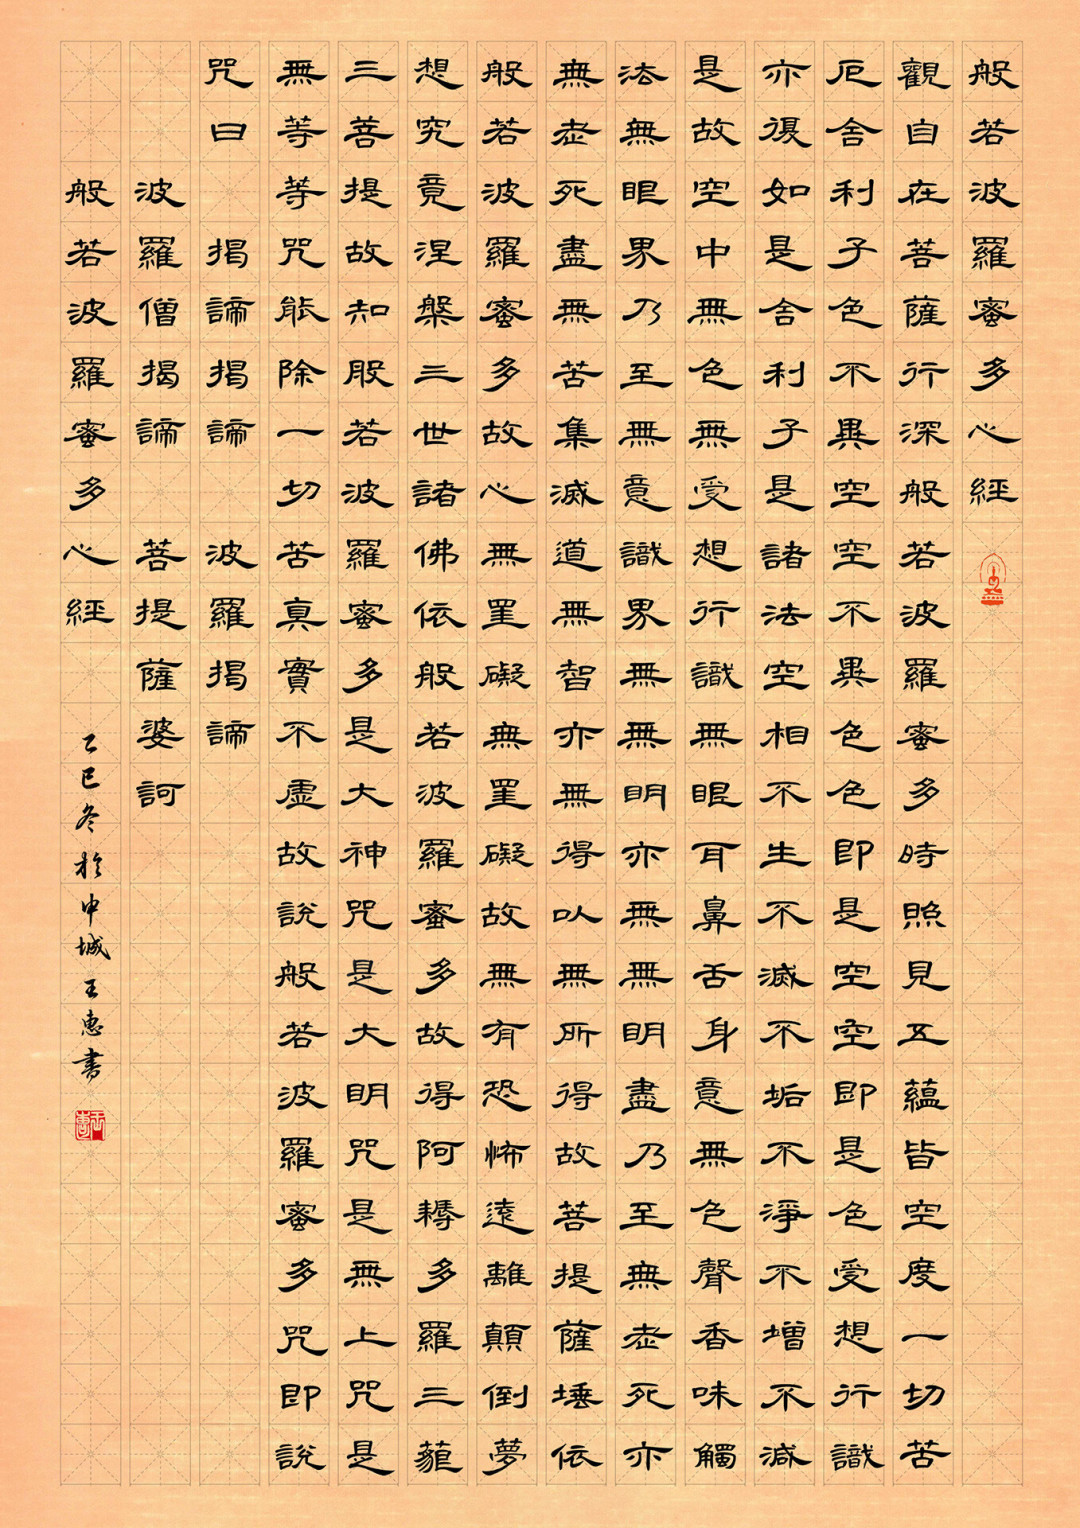 般若波羅蜜多心經
觀自在菩薩行深般若波羅蜜多時照見五蘊皆空度一切苦
厄舍利子色不異空空不異色色即是空空即是色受想行識
亦復如是舍利子是諸法空相不生不滅不垢不淨不增不減
是故空中無色無受想行識無眼耳鼻舌身意無色聲香味觸
法無眼界乃至無意識界無無明亦無無明盡乃至無老死亦
無老死盡無苦集滅道無智亦無得以無所得故菩提薩埵依
般若波羅蜜多故心無罣礙無罣礙故無有恐怖遠離顛倒夢
想究竟涅槃三世諸佛依般若波羅蜜多故得阿耨多羅三藐
三菩提故知般若波羅蜜多是大神咒是大明咒是無上咒是
無等等咒能除一切苦真實不虛故說般若波羅蜜多咒即說
咒曰 揭諦揭諦 波羅揭諦
波羅僧揭諦 菩提薩婆訶
般若波羅蜜多心經
乙巳冬於申城王惠書